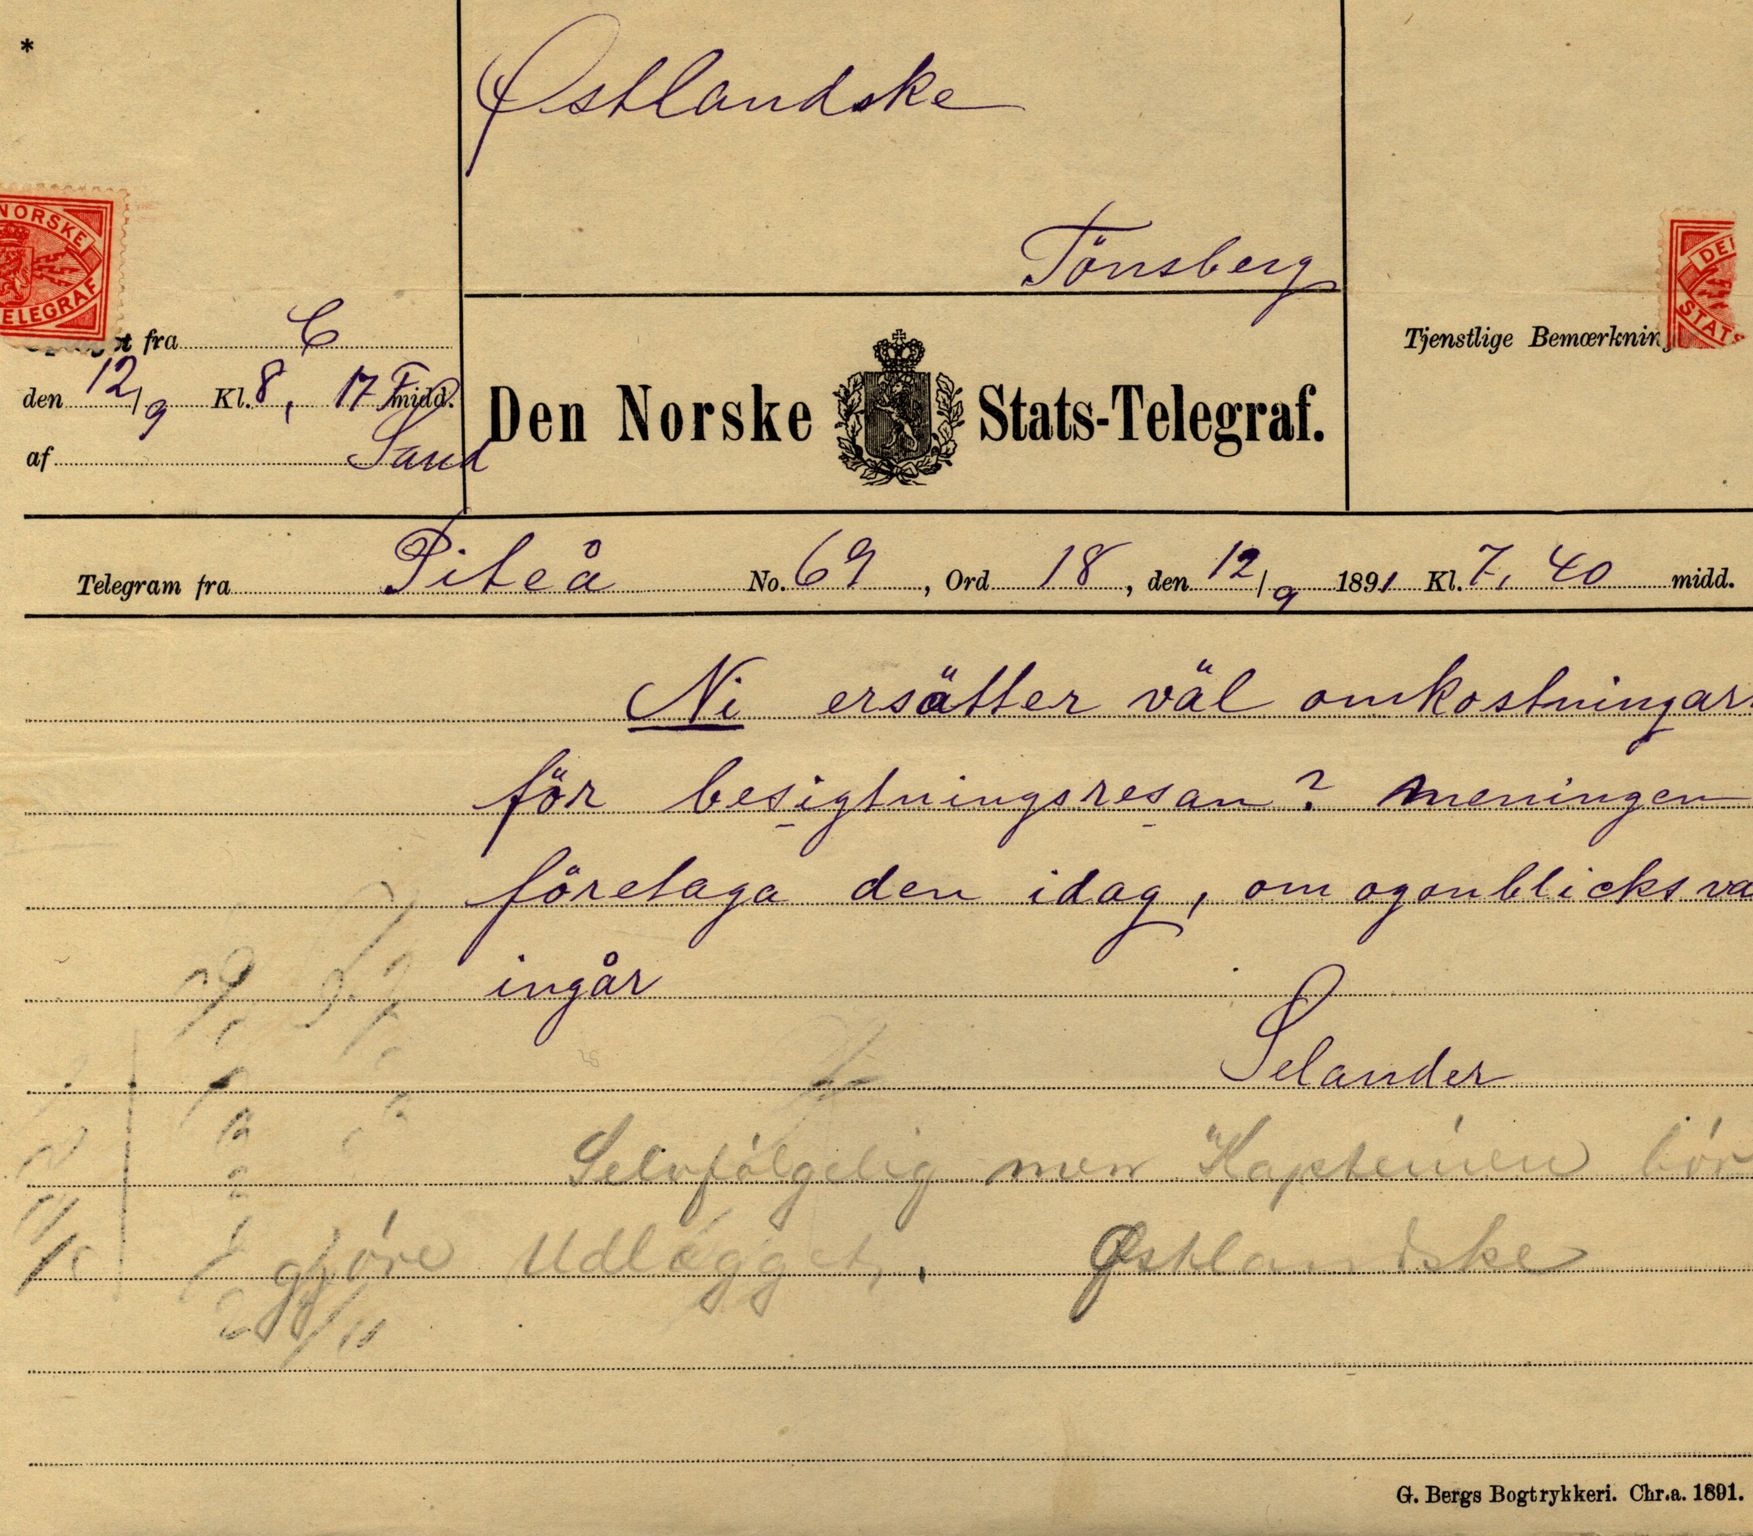 *
Østlandske
Tönsberg
NORSKE
TELEGRAF
DE
STATS
fra C
den 12/9 Kl. 8, 17 F midd.
af Sand
Tjenstlige Bemærkning
Den Norske Stats-Telegraf.
Telegram fra Piteå No. 69, Ord 18, den 12/9 1891 Kl. 7,40 midd.
Ni ersätter väl omkostningar
för besigtningsresan? meningen
företaga den idag, om ogonblicksva
ingår
Selander
Selvfölgelig men Kapteinen bör
gjöre Udlægget. Østlandske
G. Bergs Bogtrykkeri. Chr.a. 1891.